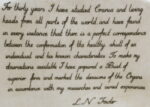 For thirty years I have studied Crania and living
heads from all parts of the world and have found
in every instance that there is a perfect correspondence
between the conformation of the healthy skull of an
individual and his known characteristics. To make my
observations available I have prepared a Bust of
superior form and marked the divisions of the Organs
in accordance with my researches and varied experience.
L.N. Fowler